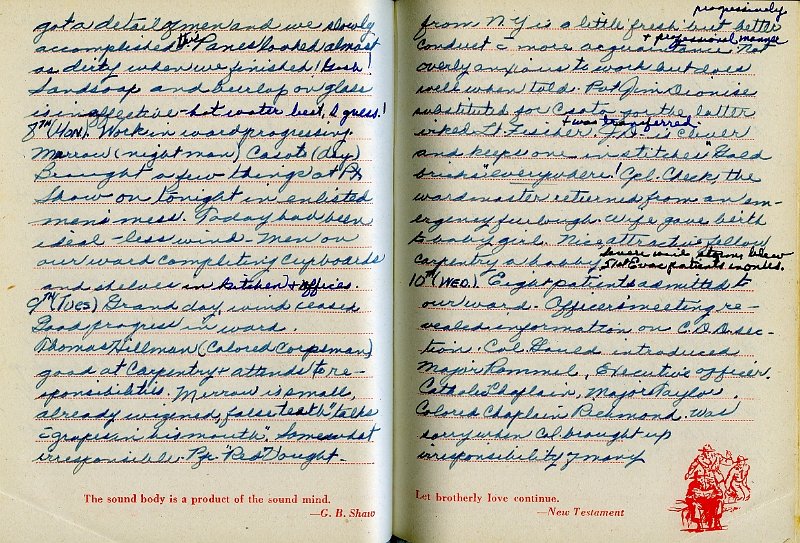 got a detail of men and we slowly
accomplished this. Panes looked almost
as dirty when we finished! Gosh!
Landsoap and burlap on glass
is ineffective - hot water best, I guess!
8TH (Mon). Work in ward progressing.
Merrow (night man) Casots (day)
Brought a few things at Px
Show on tonight in enlisted
men's mess. Today had been
ideal - less wind - Men on
our ward completing cupboards
and shelves in kitchen + offices.
9TH (Tues) Grand day, wind ceased
Good progress in ward.
Thomas Hillman (Colored Corpsman)
good at Carpentry + attends to re-
sponsibilities. Merrow is small,
already wizened, false teeth "talks
c̄ grapes in his mouth". Somewhat
irresponsible. Pfc. "Red" Vought.
The sound body is a product of the sound mind.
—G. B. Shaw
progressively
from N.Y. is a little fresh but better
+ professional manner
conduct c̄ more acquaintance. Not
overly anxious to work but does
well when told. Pvt Jim Dionise
substituted for Casots for the latter
+ was transferred
irked Lt. Fisher. J.D. is clever
and keeps one in stitches "Gold
bricks" everywhere! Cpl. Check, the
wardmaster returned from an em-
ergency furlough. Wife gave birth
to baby girl. Nice attractive fellow
carpentry a hobby. Severe wind storms blew
51st Evac patients in on us.
10TH (Wed.) Eight patients admitted to
our ward. Officers' meeting re-
vealed information on C.D.D. sec-
tion. Col. Gould introduced
Major Rommel, Executive officer.
Catholic Chaplain, Major Taylor.
Colored Chaplain Desmond. Was
sorry when Col. brought up
irresponsibility of many
Let brotherly love continue.
—New Testament